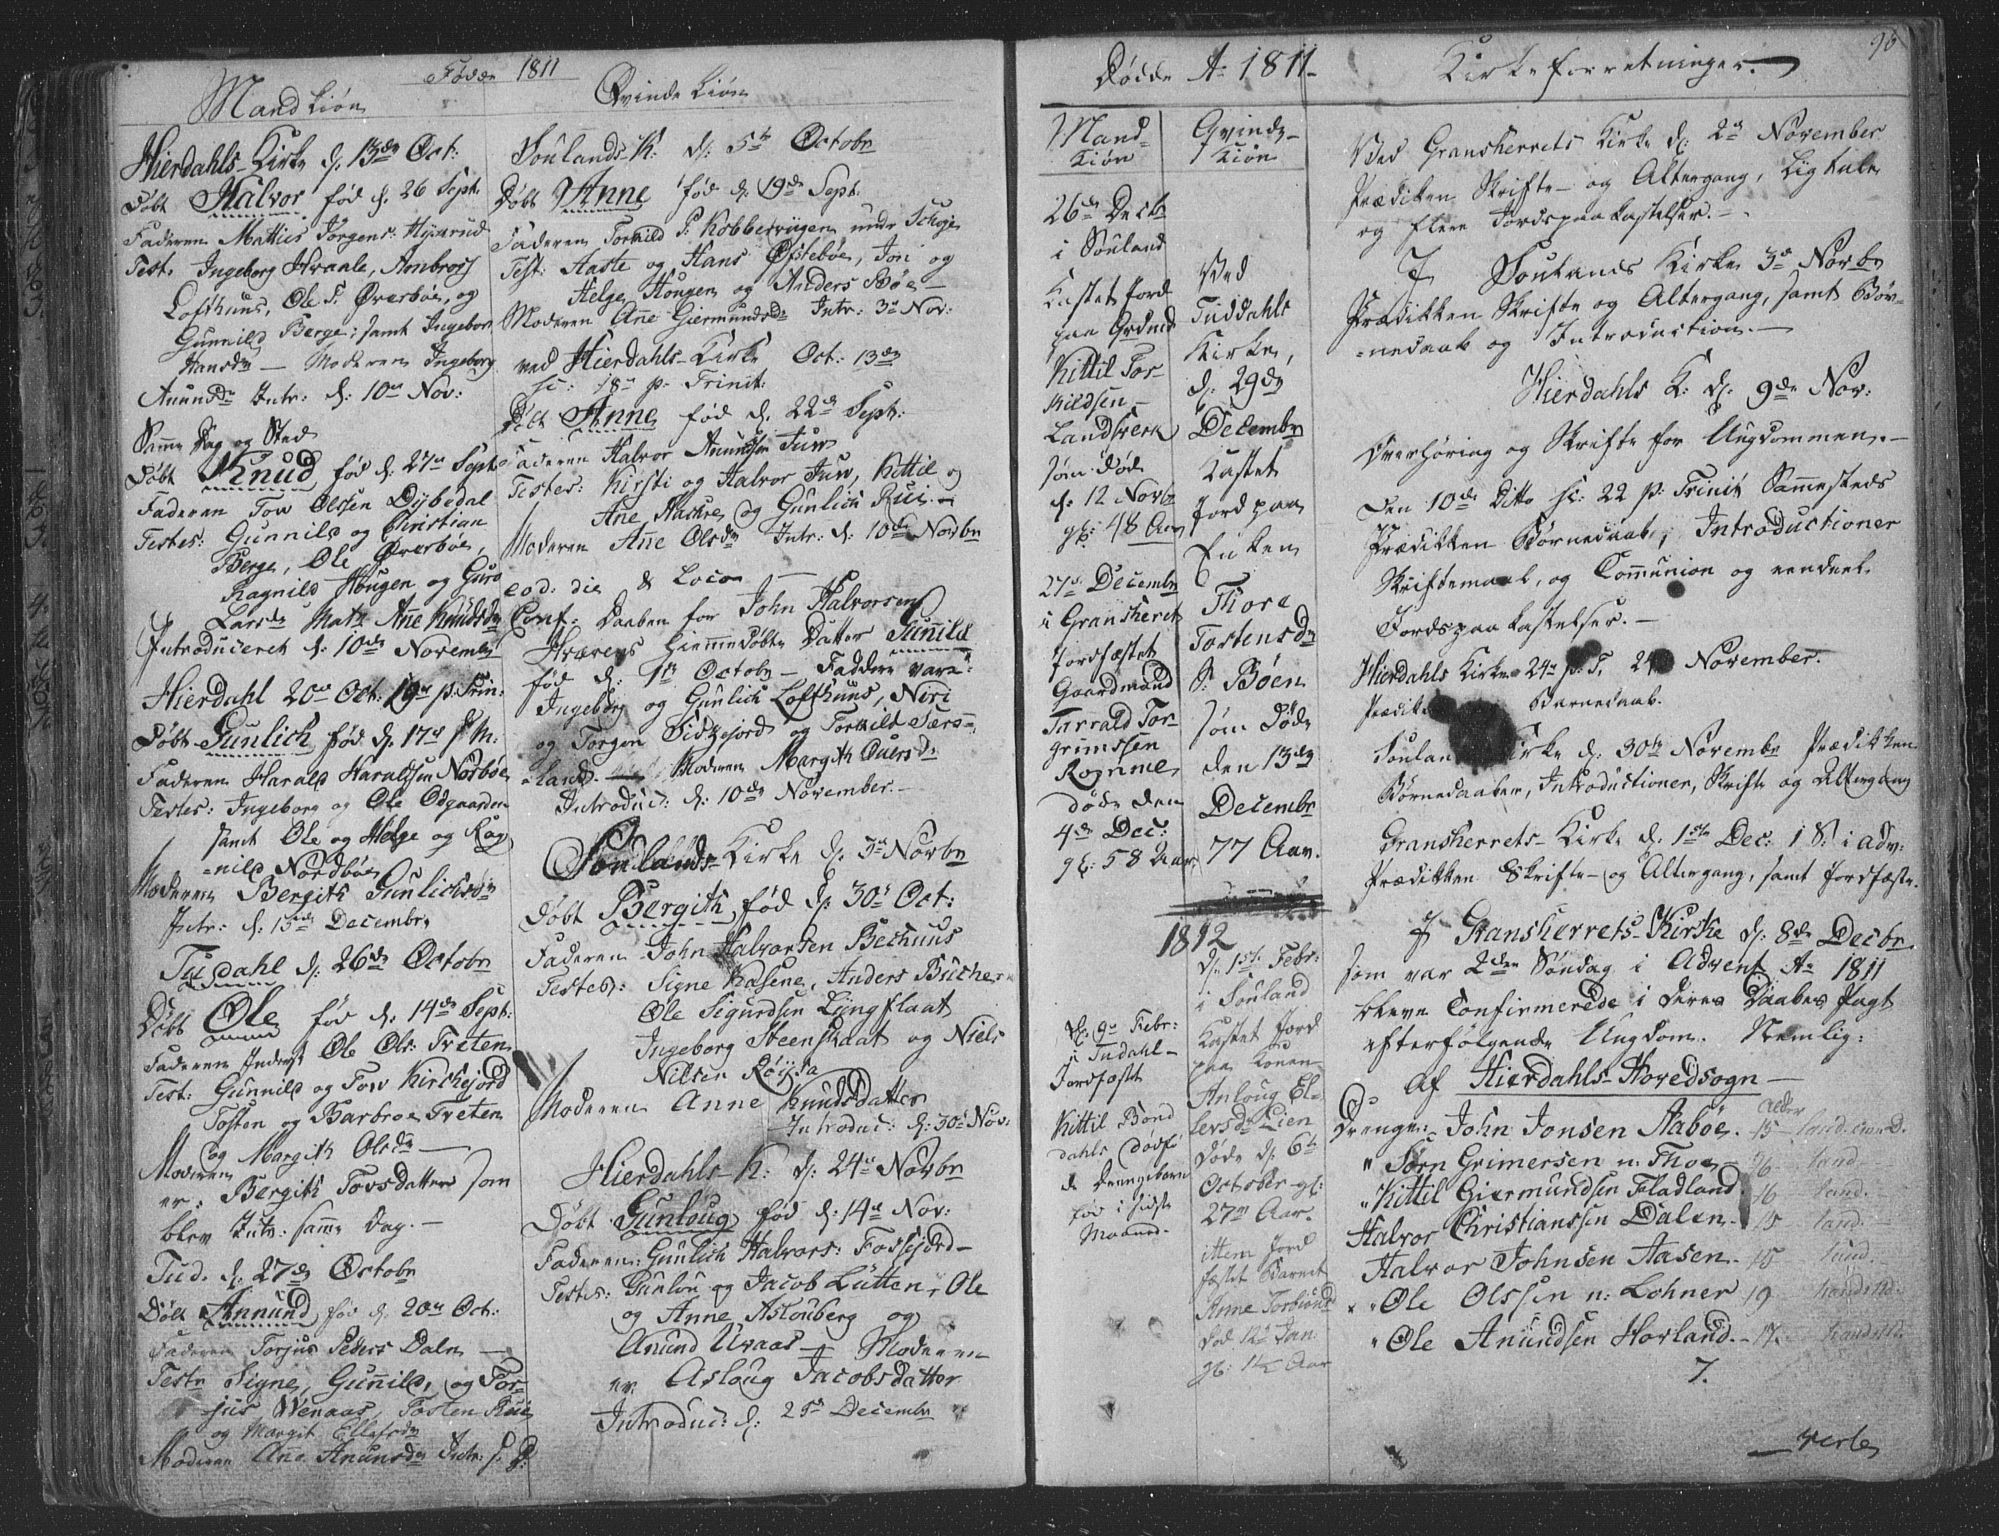 Fødde 1811
Mand Kiøn
Hierdahls Kirke d. 13de Oct:
Døbt Halvor fød d. 26 Sept.
Faderen Mathies Jørgens.
Test. Ingeborg Hvaale, Ambros
Lofthuus, Ole T. Øverbøe, og
Gunnild Berge; samt Ingeborg
Hansdr — Moderen Ingeborg
Anundsdr Intr: d. 10de Nov:
Samme Dag og Sted
Døbt Knud fød d. 27de Sept:
Faderen Tov Olsen Dybedal
Testes: Gunnild og Christian
Berge, Ole Øverbøe,
Ragnild Hougen og Guro
Larsdr Mater Anne Knudsdr
Introduceret d. 10de November
Hierdahl 20de Oct: 19de p. Trin:
Døbt Gunlich fød d. 17de s. M:
Faderen Harald Haraldsen Nordbøe
Testes: Ingeborg og Ole Odgaarden
samt Ole og Helge og Rag
=nild Nordbøe
Moderen Bergith Gunlichsdr
Intr: d. 15de Decembr.
Tudahl d: 26de Octobr
Døbt Ole fød d: 14de Sept:
Faderen Ole Ols: Treten
Test: Gunnild og Tov Kirchejord
Tosten og Barbroe Treten
og Margith Olsdr —
Moderen
er: Bergith Tovsdatter som
blev Intr: samme Dag. —
Tud. d: 27de Octobr
Døbt Annund fød d. 20de Oct:
Faderen Torjus Peders Dalen —
Teste Signe, Gunnild, og Tor-
jus Wenaas, Tosten Rui
og Margit Ellefsdr
Moderen Anne Anunsdr Intr: s. D:
Qvinde Kiøn
Soulands K: d: 5te Octobr
Døbt Anne fød d. 19de Sept:
Faderen Torkild P. Kobbervigen
Test: Aaste og Hans Øftebøe, Jon og
Helge Hougen og Anders Bøe —
Moderen Ane Giermundsdr Intr: 3de Nov:
ved Hierdahls Kirke Oct: 13de
sc: 18de p. Trinit:
Døbt Anne fød d. 22de Sept:
Faderen Halvor Anundsen Juv
Testes: Kirsti og Halvor Juv, Kittil og
Ane Haekre og Gunlich Rui. —
Moderen Anne Olsdr Intr: d: 10de Novbr
eod: die & Loco —
Conf: Daaben for John Halvorsen
Hierens hiemmedøbte Datter Gunild
fød d: 1te Octobr — Faddere vare:
Ingeborg og Gunlich Lofthuus, Neri
og Torgon Sidsejord og Torkild Særs=
=land. — Moderen Margith Ouersdr
Introduc: d: 10de November. —
Soulands Kirke d: 3de Novbr
Døbt Bergith fød d: 30te Oct:
Faderen John Halvorsen Bechuus
Testes: Signe Kasene, Anders Bucher
Ole Sigurdsen Liengflaat
Ingeborg Steenflaat og Niels
Nilsen Røissa
Moderen Anne Knudsdatter
Introduc: d: 30te Nov:
Hierdahls K: d: 24de Novbr
Døbt Gunloug fød d: 14de Nov:
Faderen: Gunlich Halvors: Fossejord —
Testes: Gunlou og Jacob Lütten, Ole
og Anne Aslouberg og
Anund Uraas — Moderen
er Asloug Jacobsdatter
Introduc: d: 25de Decembr
Dødde Ao 1811
Mand-
Kiøn
26de Decbr
i Souland
kastet Jord
paa Grdmd
Kittil Tor-
kildsen
Landsverk
som døde
d. 12 Novb
gl: 48 Aar
27de Decembr
i Gransherret
Jordfæstet
Gaardmand
Tarrald Tor-
grimssen
Romme
døde den
4de Dec:
gl: 58 Aar
D: 9de Febr:
i Tudahl —
Jordfæstet
Kittil Bond
dahls
Drengebarn
fød i sidste
Maaned.
Qvinde-
Kiøn
Ved
Tuddahls
Kirke,
d: 29de
Decembr
Kastet
Jord paa
Enken
Thore
Tostensdr
S: Bøen
som døde
den 13de
Decembr
77 Aar.
1812
D: 1ste Febr:
i Souland
kastet Jord
paa Konen
Anloug El-
lefsdr Lien
døde d. 6te
October gl:
27 Aar.
ittem Jord
fæstet Barnet
Anne Torbiønsd
død 12te Jan:
gl: 1½ Aar
Kirkeforretninger.
96
Ved Gransherrets Kirke d: 2de November
Prædiken Skrifte- og Altergang, Ligtale
og fleere Jordspaakastelser. —
I Soulands Kirke 3de Novbr
Prædikken Skrifte og Altergang, samt Bør-
=nedaab og Introduction. —
Hierdahls K: d: 9de Nov:
Overhøring og Skrifte for Ungdommen. —
Den 10de Ditto sc: 22 p. Trinit Sammesteds
Prædikken Børnedaab, Introductioner
Skriftemaal, og Communion og eendeel
Jordspaakastelser. —
Hierdahls Kirke 24de p. T. 24 November.
Prædik Barnedaab.
Soulan Kirke d: 30te Novembr Prædikken
Børnedaaben, Introductioner, Skrifte og Altergang
Gransherrets-Kirke d: 1ste Dec: 1 S: i Adv:
Prædikken Skrifte- og Altergang, samt Jordfæste.
I Gransherrets-Kirke d: 8de Decbr
som var 2den Søndag i Advent Ao 1811
bleve Confirmerede i deres Daabes Pagt
efterfølgende Ungdom. Nemlig:
Af Hierdahls-Hovedsogn —
Alder
Drenge: John Jonsen Aabøe. 15
" Sørn Grimersen u: Thoe 16
" Kittil Giermundsen Fladland 16
Halvor Christianssen Dalen 15
Halvor Johnsen Aasen 15
" Ole Olssen u: Løhner 19
" Ole Anundsen Horland 17
7.
— verte